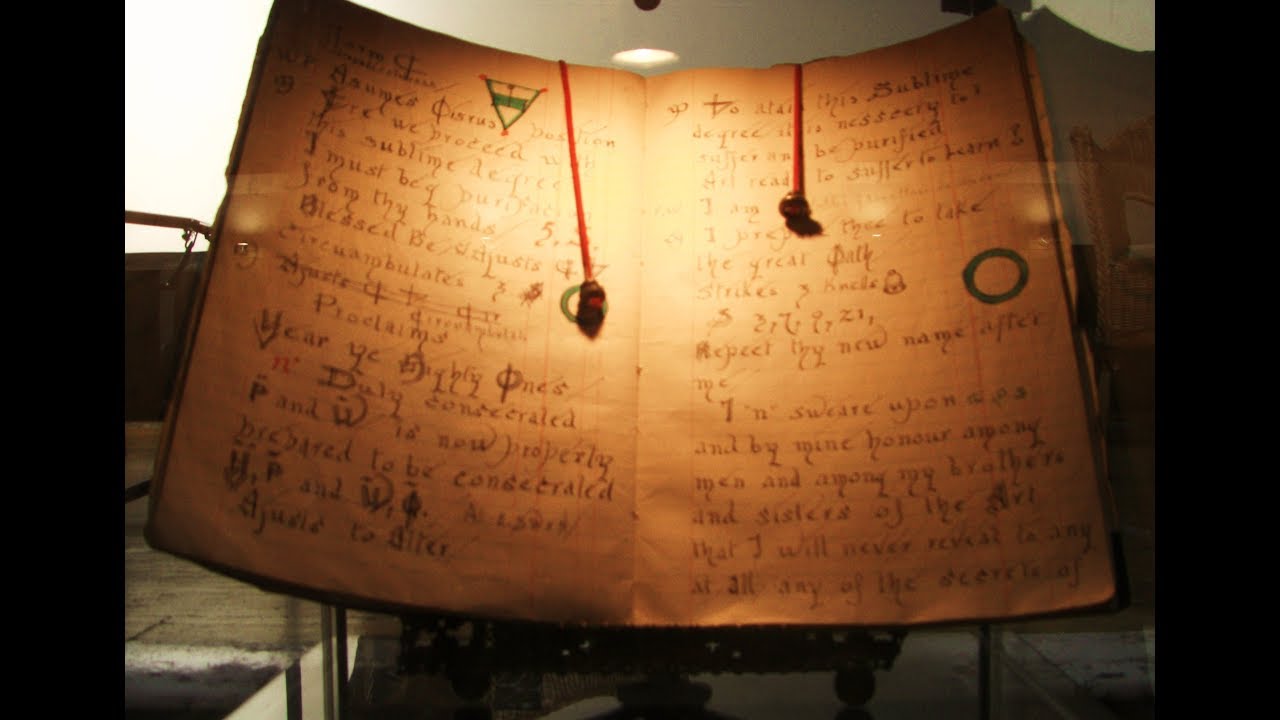 Assumes Osirus position
Ere we proceed with
this sublime degree
I must beg purification
from thy hands
Blessed Be & Ajusts
Circuambulates 3
Ajusts
Proclaims
Hear ye Mighty Ones
"n" Duly consecrated
P and W is now properly
prepared to be consecrated
H, P and W, P.
Ajusts to Alter.
To atain this Sublime
degree it is nessecry to
suffer and be purified
Art ready to suffer to Learn ?
I am
I prepare thee to take
the great Oath
Strikes 3 Knells
S 3, 7, 9, 21,
Repeet thy new name after
me
I "n" sweare upon
and by mine honour among
men and among my brothers
and sisters of the Art
that I will never reveal to any
at all any of the secrets of